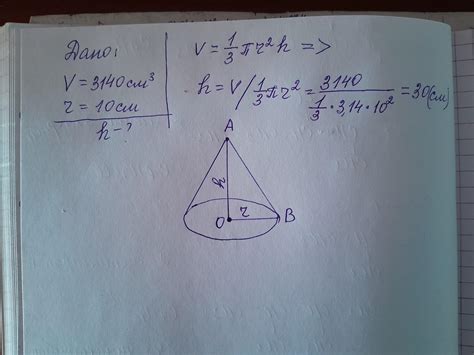 Дано:
V = 3140 см³
r = 10 см
h - ?
V = 1/3 πr²h =>
h = V / 1/3 πr² = 3140 / (1/3 * 3,14 * 10²) = 30 (см)
A
h
O r B